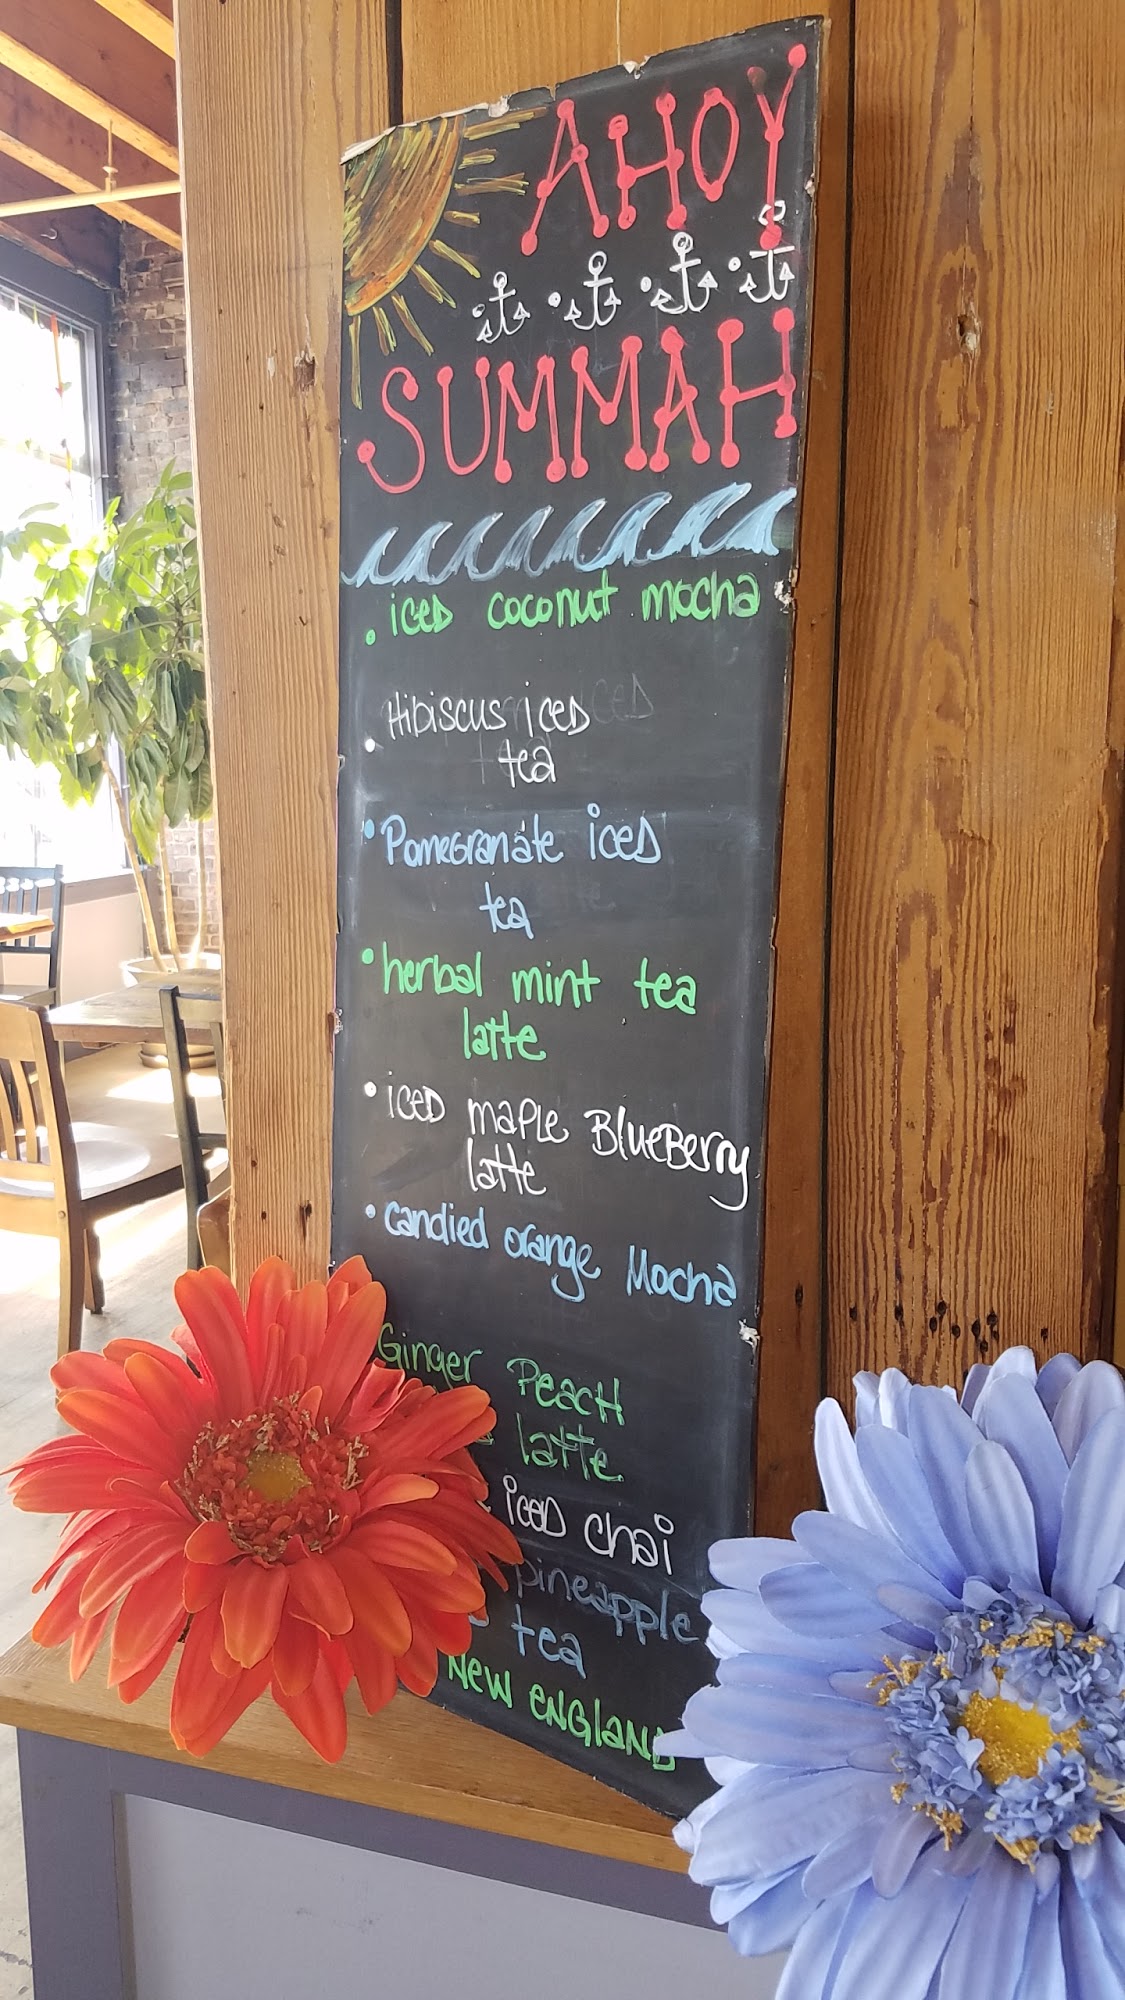 AHOY
SUMMAH
• iced coconut mocha
• Hibiscus iced
tea
• Pomegranate iced
tea
• herbal mint tea
latte
• iced maple BlueBerry
latte
• candied orange Mocha
Ginger Peach
latte
iced chai
pineapple
tea
New England